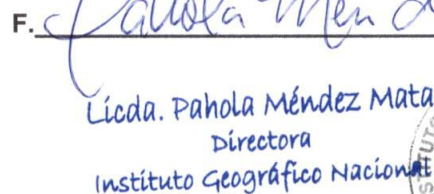 F. Pahola Mén
Licda. Pahola Méndez Mata
Directora
Instituto Geográfico Nacional